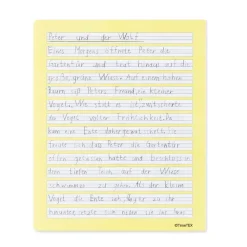 Peter und der Wolf
Eines Morgens öffnete Peter die
Gartentür und trat hinaus auf die
große, grüne Wiese. Auf einem hohen
Baum saß Peters Freund, ein kleiner
Vogel. Wie still es ist, zwitscherte
der Vogel voller Fröhlichkeit. Da
kam eine Ente dahergewatschelt. Sie
freute sich, das Peter die Gartentür
offen gelassen hatte und beschloss in
dem tiefen Teich auf der Wiese
schwimmen zu gehen. Als der kleine
Vogel die Ente sah, flog er zu ihr
hinunter, setzte sich neben sie ins Gras